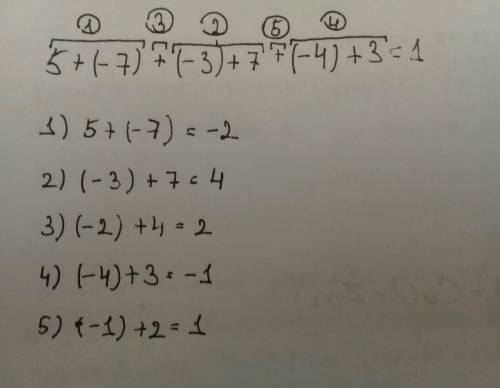 ① ③ ② ⑤ ④
5 + (-7) + (-3) + 7 + (-4) + 3 = 1
1) 5 + (-7) = -2
2) (-3) + 7 = 4
3) (-2) + 4 = 2
4) (-4) + 3 = -1
5) (-1) + 2 = 1